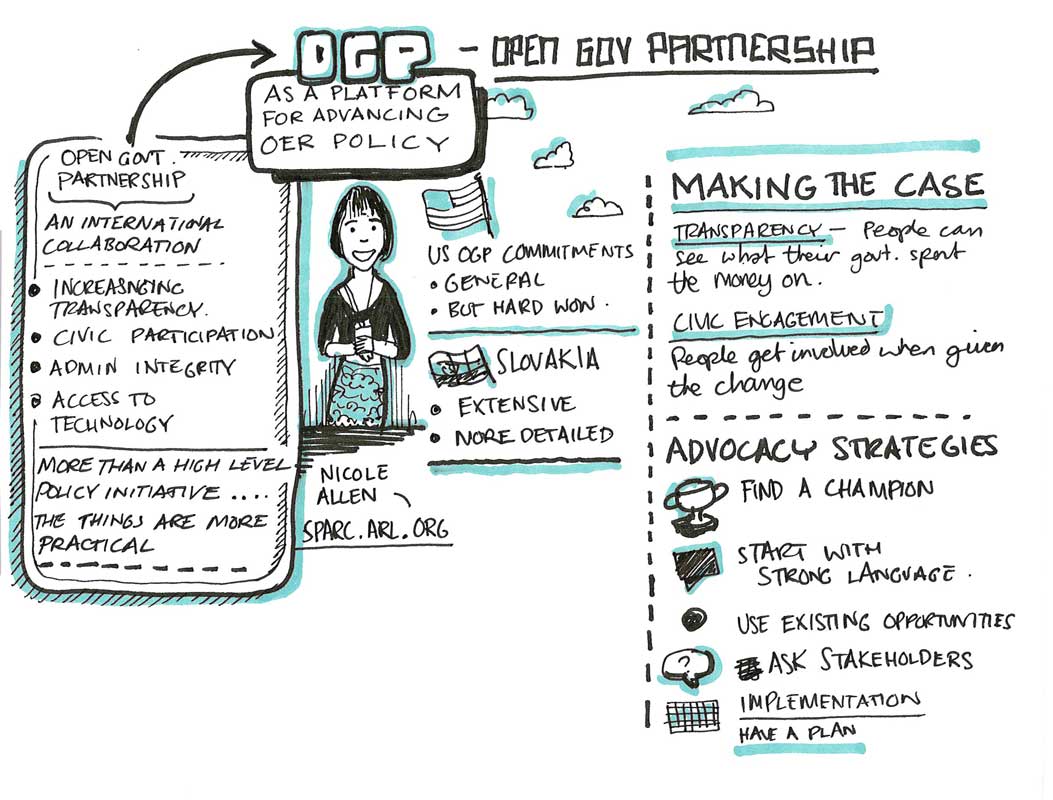 OGP - OPEN GOV PARTNERSHIP
AS A PLATFORM
FOR ADVANCING
OER POLICY
OPEN GOVT.
PARTNERSHIP
AN INTERNATIONAL
COLLABORATION
• INCREASNGING
TRANSPARENCY.
• CIVIC PARTICIPATION
• ADMIN INTEGRITY
• ACCESS TO
TECHNOLOGY
MORE THAN A HIGH LEVEL
POLICY INITIATIVE ....
THE THINGS ARE MORE
PRACTICAL
NICOLE
ALLEN
SPARC.ARL.ORG
US OGP COMMITMENTS
• GENERAL
• BUT HARD WON.
SLOVAKIA
• EXTENSIVE
• MORE DETAILED
MAKING THE CASE
TRANSPARENCY - People can
see what their govt. spent
the money on.
CIVIC ENGAGEMENT
People get involved when given
the change
ADVOCACY STRATEGIES
FIND A CHAMPION
START WITH
STRONG LANGUAGE.
USE EXISTING OPPORTUNITIES
?
ASK STAKEHOLDERS
IMPLEMENTATION
HAVE A PLAN